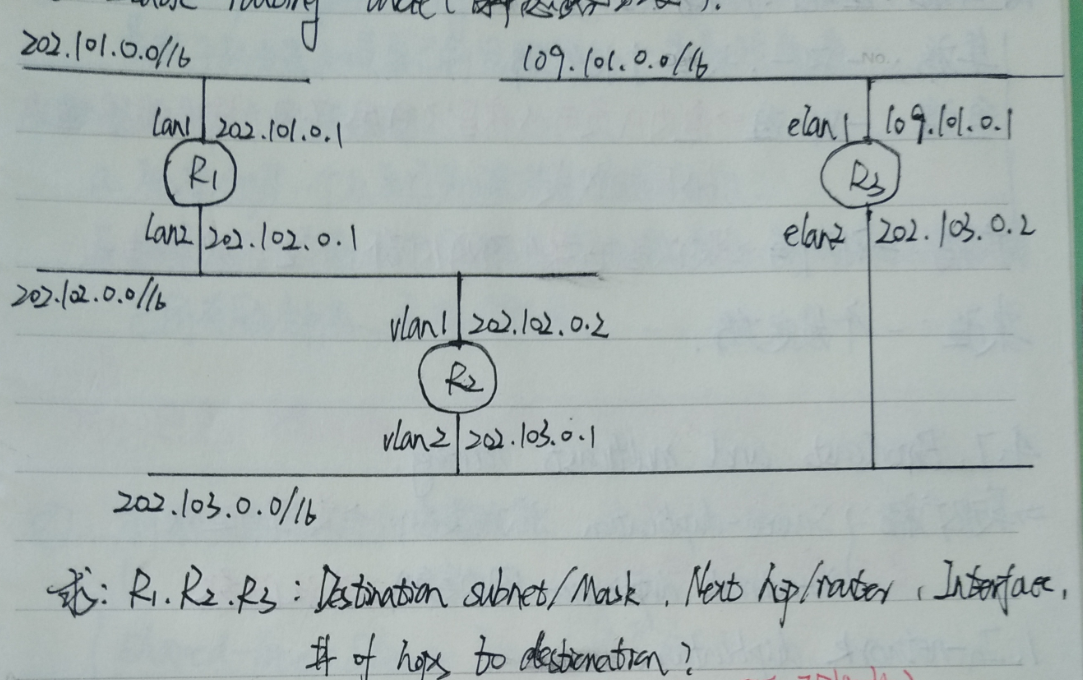 routing
202.101.0.0/16
109.101.0.0/16
lan1 202.101.0.1
elan1 109.101.0.1
R1
R3
lan2 202.102.0.1
elan2 202.103.0.2
202.102.0.0/16
vlan1 202.102.0.2
R2
vlan2 202.103.0.1
202.103.0.0/16
求: R1. R2. R3: Destination subnet/Mask, Next hop/router, Interface,
# of hops to destionation?